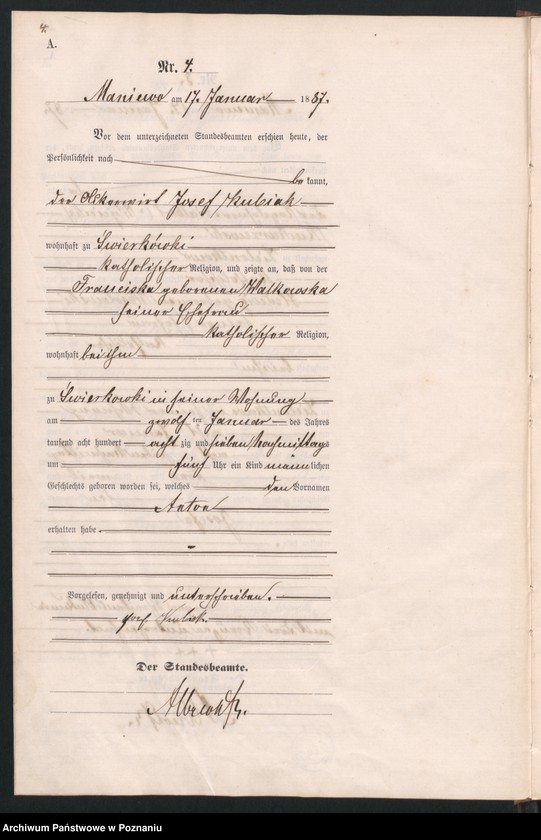 4.
A.
Nr. 4.
Maniewo am 17. Januar 1887.
Vor dem unterzeichneten Standesbeamten erschien heute, der
Persönlichkeit nach
bekannt,
der Ackerwirt Josef Kubiak
wohnhaft zu Świerkówki
katholischer Religion, und zeigte an, daß von der
Franciska geborenen Walkowska
seiner Ehefrau
katholischer Religion,
wohnhaft bei ihm
zu Świerkowki in seiner Wohnung
am zwölf ten Januar des Jahres
tausend acht hundert acht zig und sieben Nachmittags
um fünf Uhr ein Kind männlichen
Geschlechts geboren worden sei, welches den Vornamen
Anton
erhalten habe.
Vorgelesen, genehmigt und unterschrieben.
Josef Kubiak.
Der Standesbeamte.
Archiwum Państwowe w Poznaniu